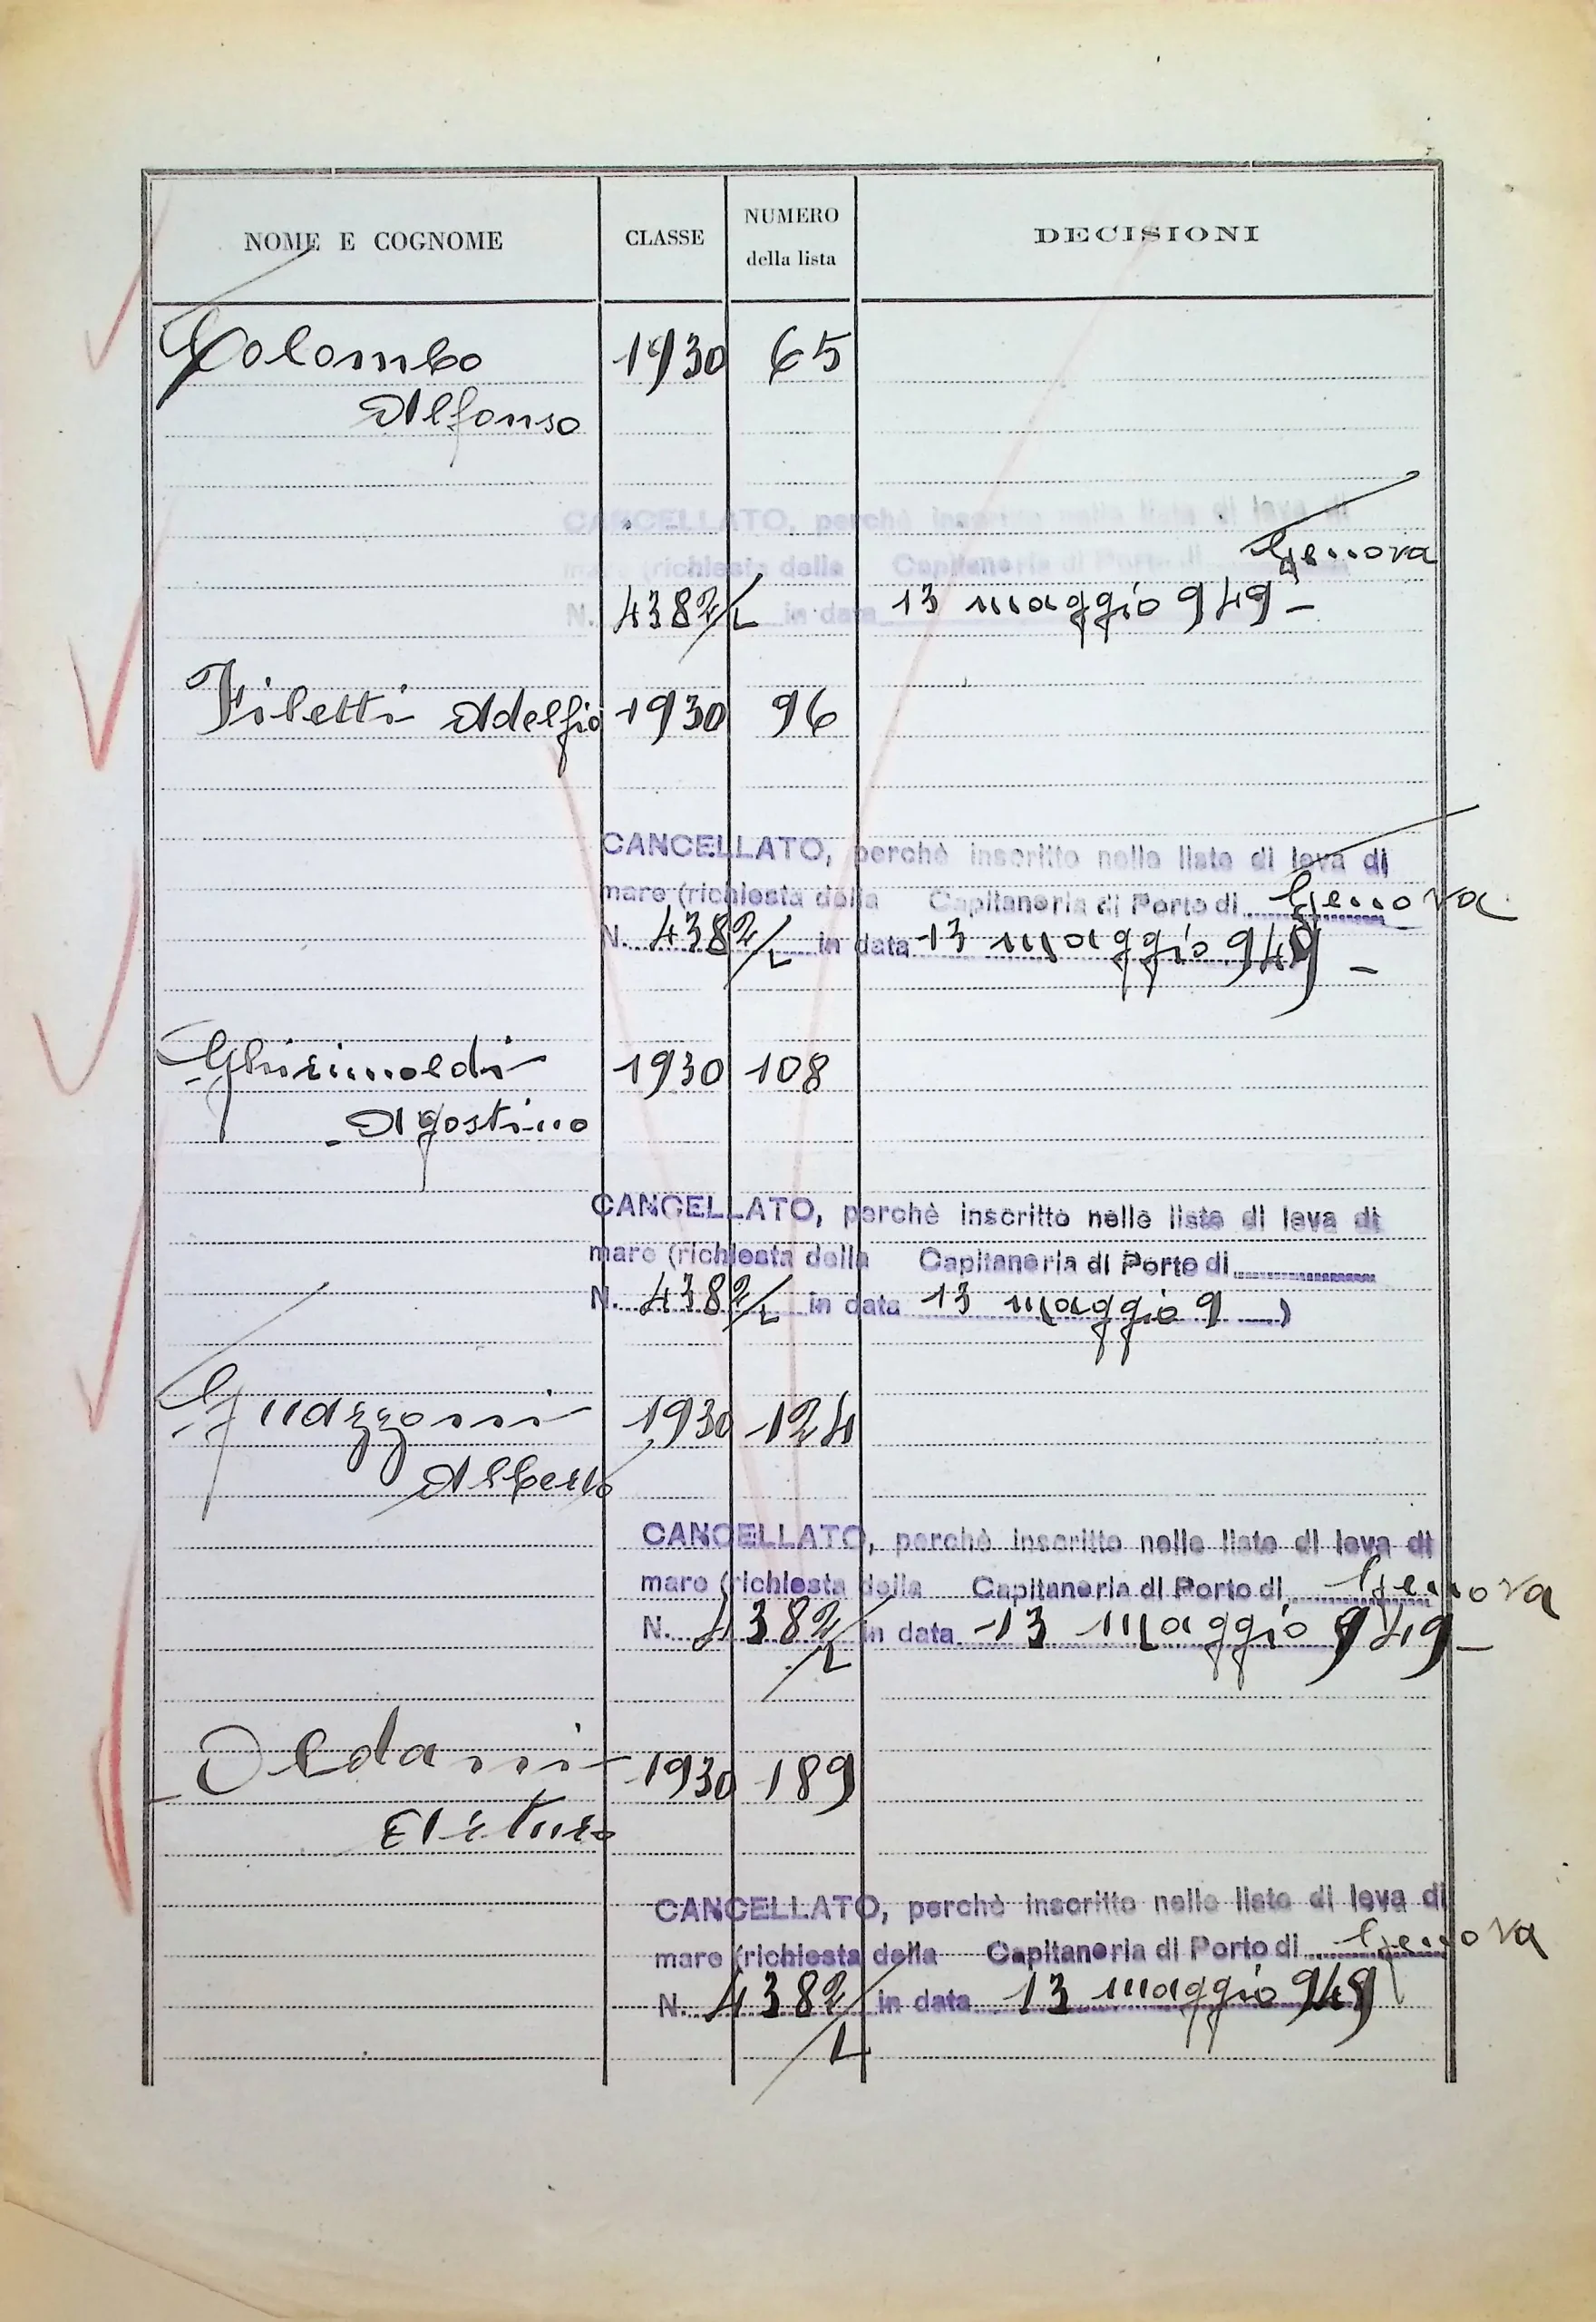 NOME E COGNOME CLASSE NUMERO della lista DECISIONI
Colombo 1930 65
Alfonso
CANCELLATO, perchè inscritto nelle liste di leva di
mare (richiesta della Capitaneria di Porto di Genova
N. 4382/L in data 13 maggio 949 -
Filetti Adelfio 1930 96
CANCELLATO, perchè inscritto nelle liste di leva di
mare (richiesta della Capitaneria di Porto di Genova
N. 4382/L in data 13 maggio 949 -
Ghirimoldi 1930 108
Agostino
CANCELLATO, perchè inscritto nelle liste di leva di
mare (richiesta della Capitaneria di Porto di
N. 4382/L in data 13 maggio 9 )
Guazzoni 1930 124
Alberto
CANCELLATO, perchè inscritto nelle liste di leva di
mare (richiesta della Capitaneria di Porto di Genova
N. 4382/L in data 13 maggio 949 -
Oldani 1930 189
Arturo
CANCELLATO, perchè inscritto nelle liste di leva di
mare (richiesta della Capitaneria di Porto di Genova
N. 4382/L in data 13 maggio 949